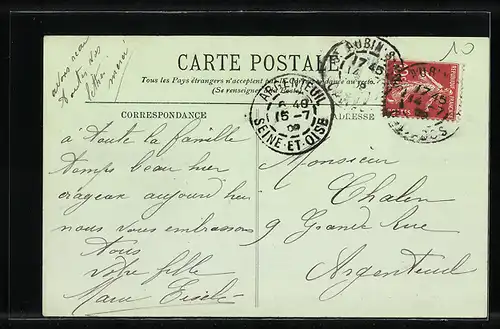 avons reçu
toutes les
lettre
merci
10
CARTE POSTALE
Tous les Pays étrangers n'acceptent pas la
(Se renseigner
CORRESPONDANCE
ADRESSE
ARGENTEUIL
6 40
15 -7
09
SEINE-ET-OISE
ST AUBIN-S
17 45
à toute la famille
temps beau hier
orageux aujourd hui
nous vous embrassons
Tous
votre fille
Marie
Monsieur
Chalon
9 Grande Rue
Argenteuil